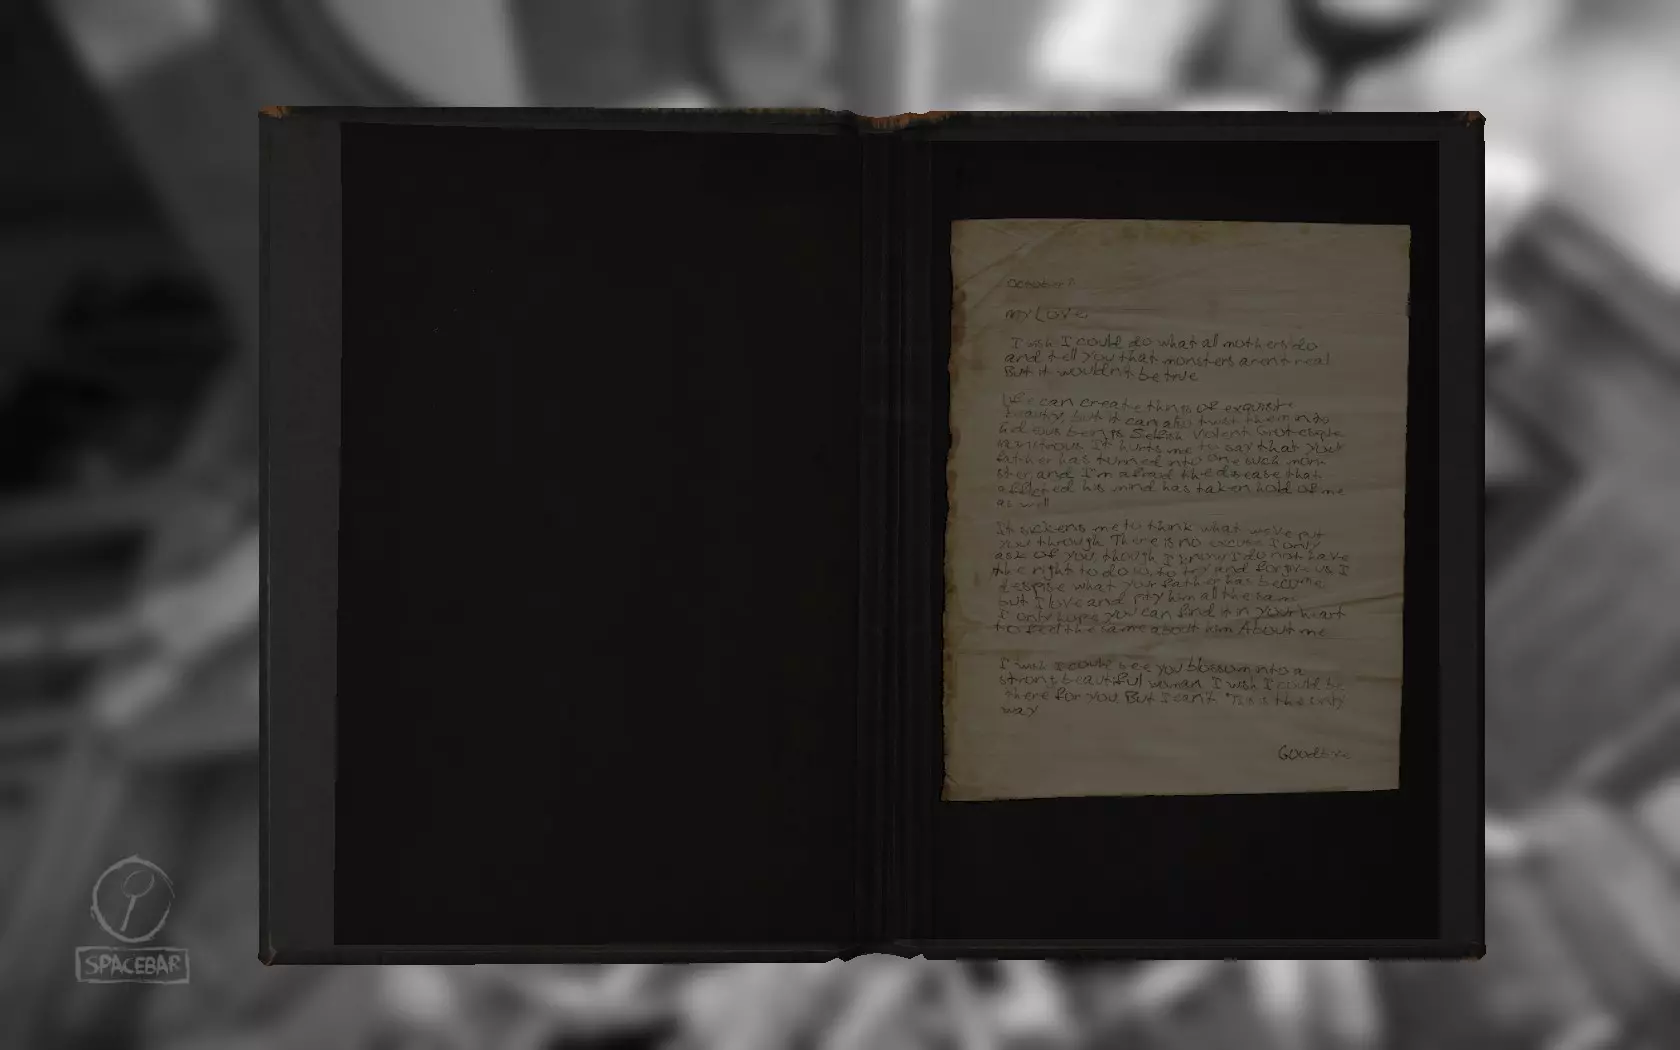 October
my Love
I wish I could do what all mothers do
and tell you that monsters aren't real
But it wouldn't be true
Life can create things of exquisite
beauty, but it can also twist them into
hideous beings Selfish Violent Grotesque
monstrous It hurts me to say that your
father has turned into one such mon-
ster, and I'm afraid the disease that
afflicted his mind has taken hold of me
as well
It sickens me to think what we've put
you through. There is no excuse I only
ask of you, though I know I do not have
the right to do so, to try and forgive us I
despise what your father has become
but I love and pity him all the same
I only hope you can find it in your heart
to feel the same about him About me
I wish I could see you blossom into a
strong beautiful woman I wish I could be
there for you But I can't This is the only
way
Goodbye
SPACEBAR